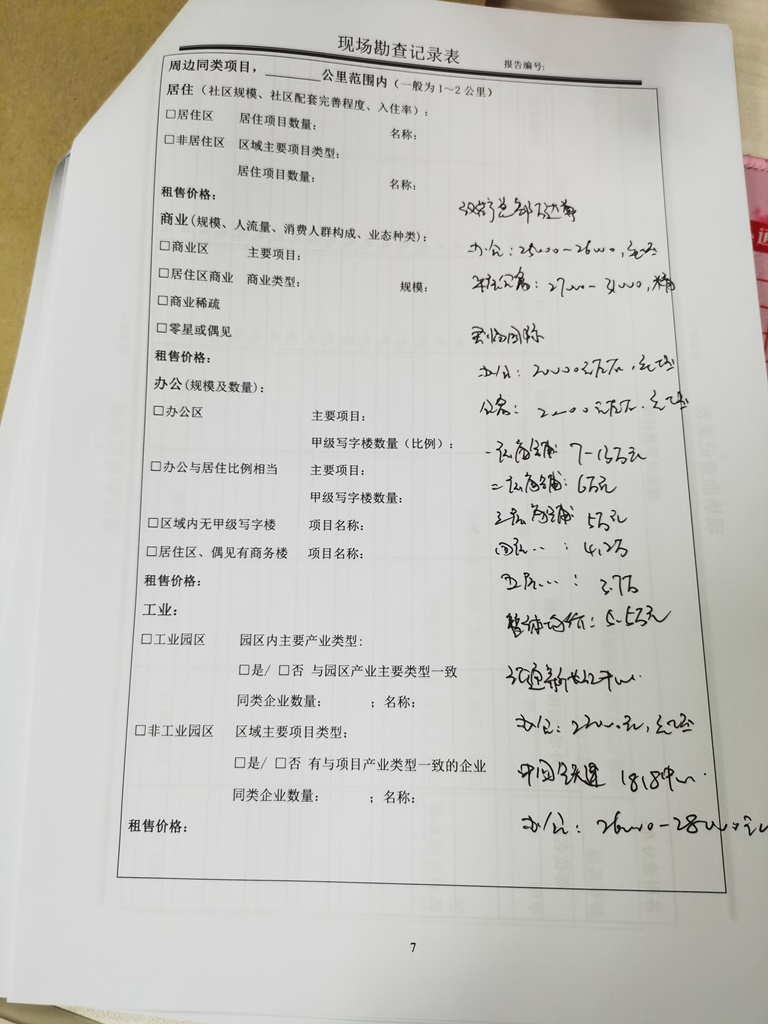 现场勘查记录表
报告编号:
周边同类项目，______公里范围内（一般为1～2公里）
居住（社区规模、社区配套完善程度、入住率）:
□居住区 居住项目数量: 名称:
□非居住区 区域主要项目类型:
居住项目数量: 名称:
租售价格:
商业(规模、人流量、消费人群构成、业态种类):
办公:25000-26000,毛坯
□商业区 主要项目:
□居住区商业 商业类型: 规模:
公寓:27000-31000,
□商业稀疏
□零星或偶见
国际
租售价格:
办公:20000元/平方,毛坯
办公(规模及数量):
公寓:
元/平方.毛坯
□办公区 主要项目:
甲级写字楼数量(比例):
一层商铺 7-15万元
□办公与居住比例相当 主要项目:
二层商铺:6万元
甲级写字楼数量:
三层商铺 5万元
□区域内无甲级写字楼 项目名称:
四层‥:4.2万
□居住区、偶见有商务楼 项目名称:
五层…:3.7万
租售价格:
整体均价:5.5万元
工业:
□工业园区 园区内主要产业类型:
□是/ □否 与园区产业主要类型一致
同类企业数量: ;名称:
□非工业园区 区域主要项目类型:
办公:22000元,毛坯
□是/ □否 有与项目产业类型一致的企业
中国铁建 1818中心
同类企业数量: ;名称:
租售价格:
办公:26000-28000元
7